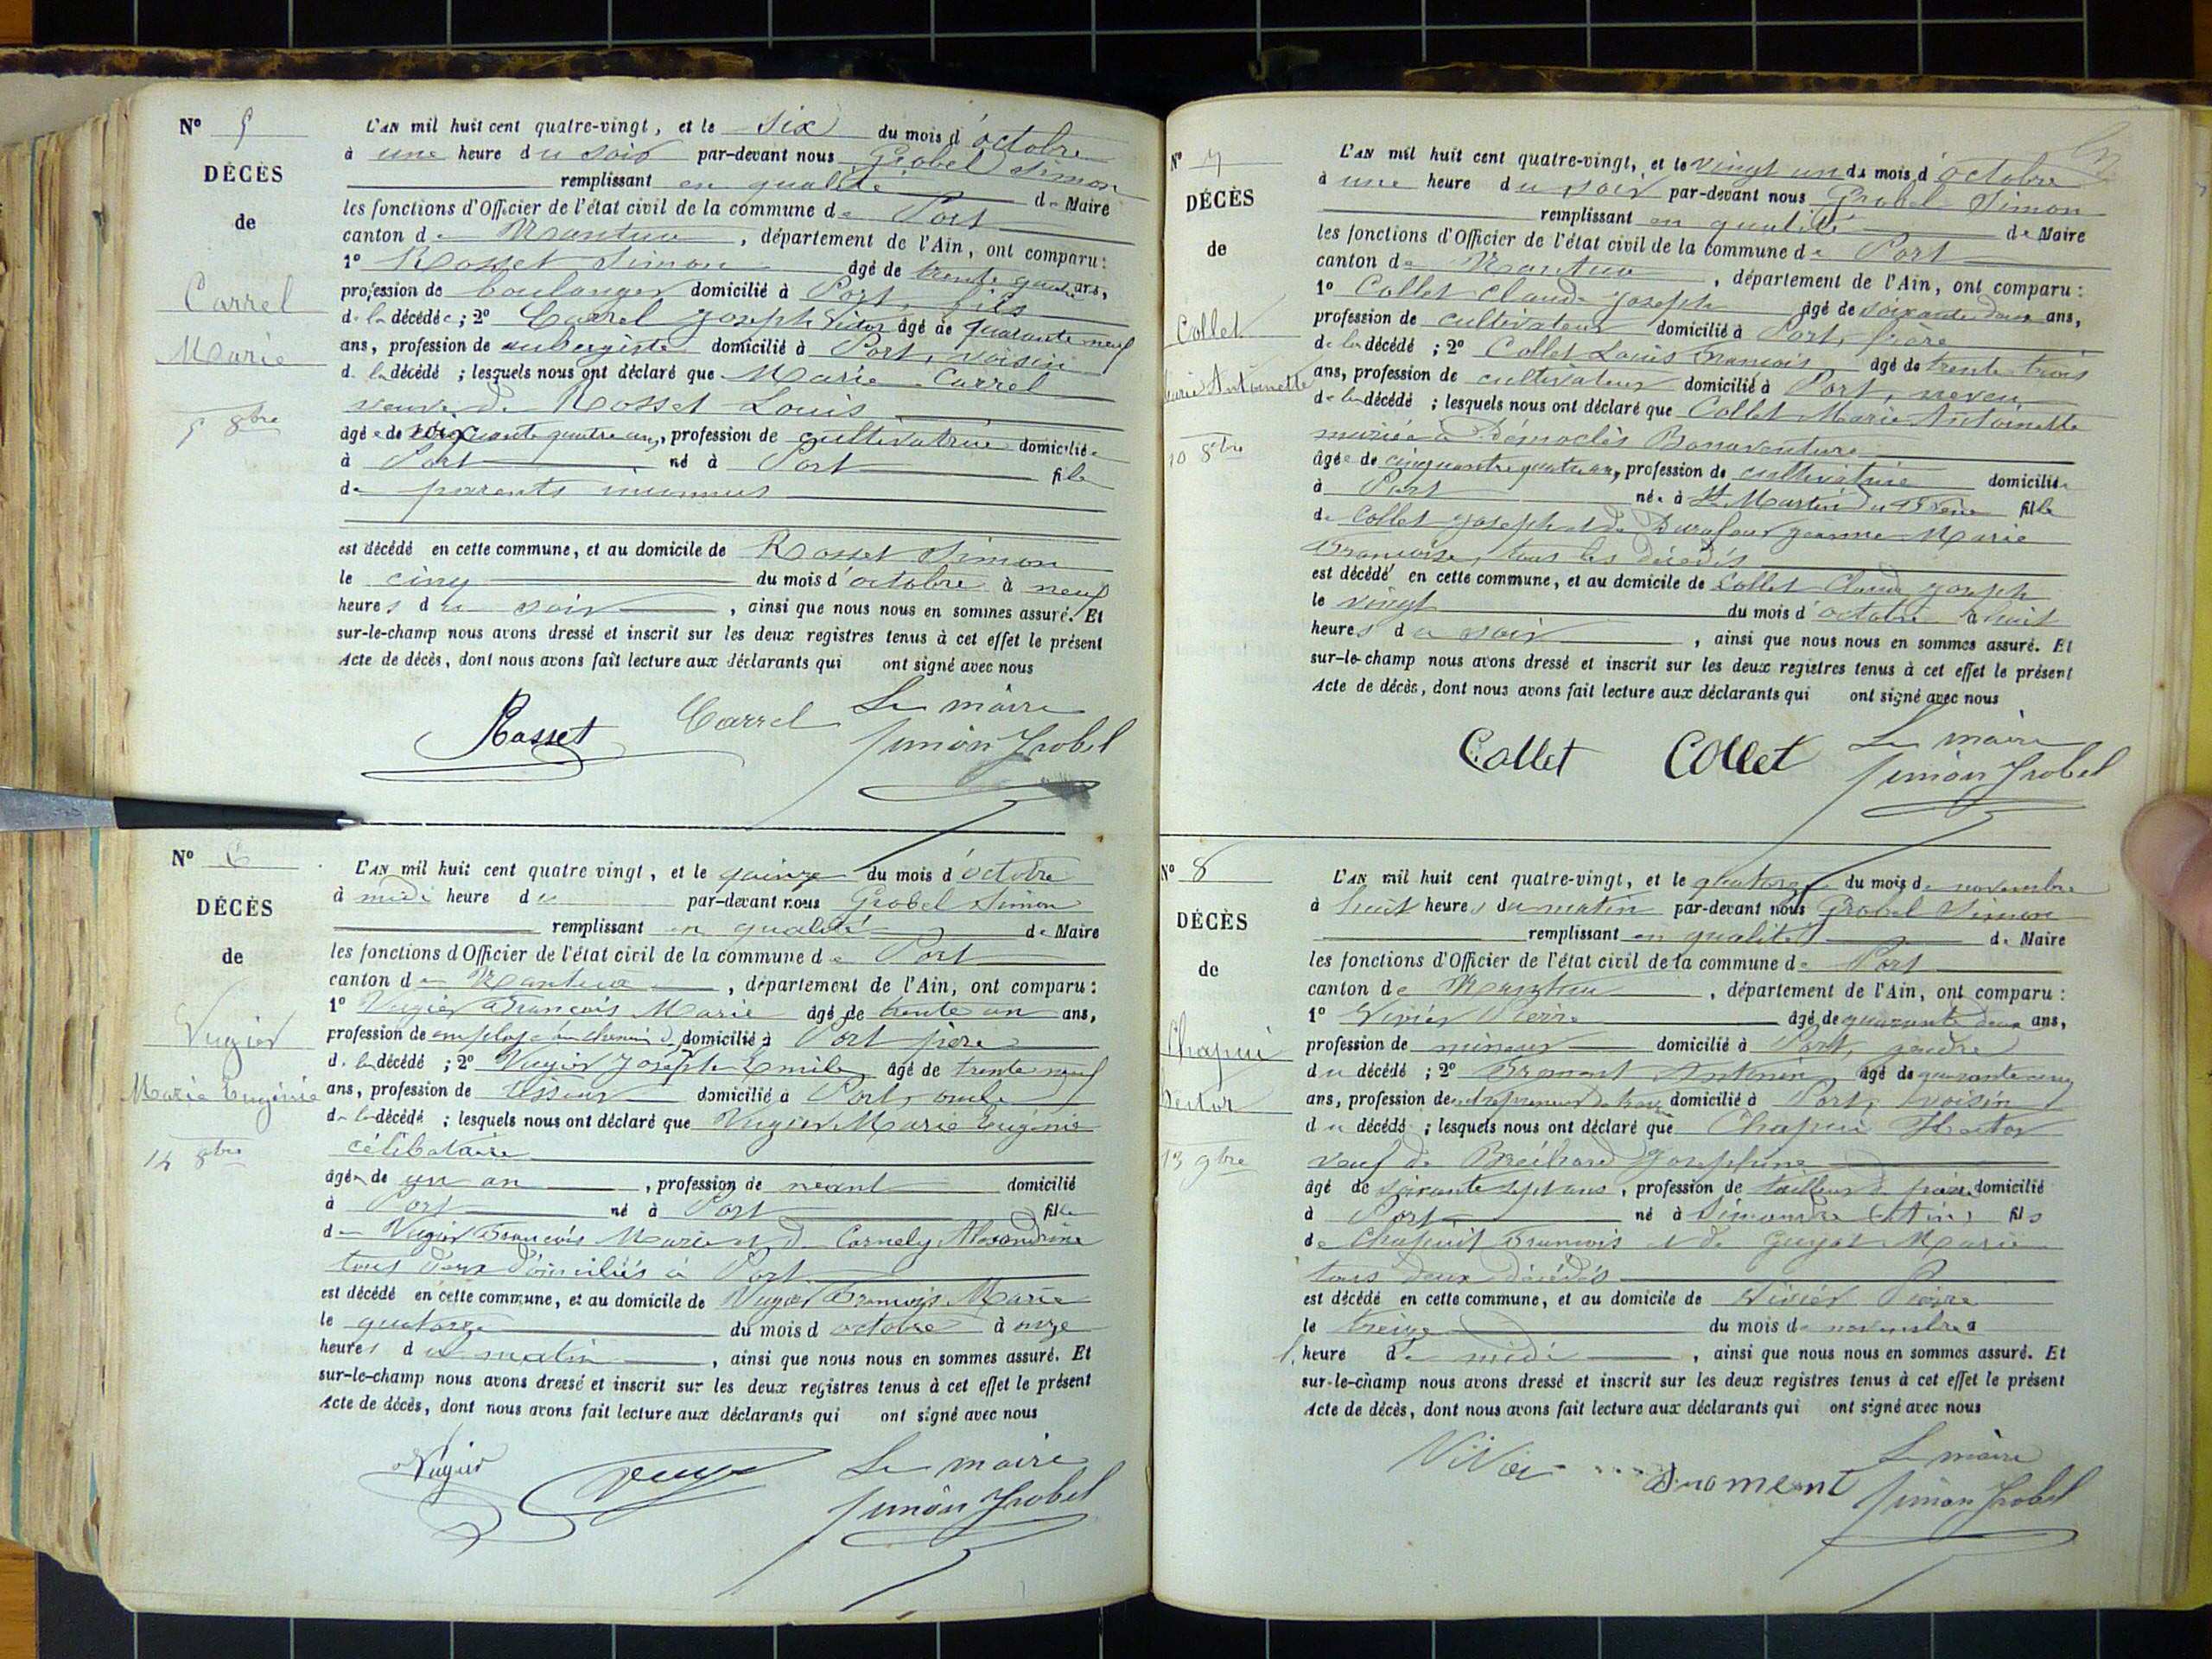 N° 5
DÉCÈS
de
Carrel
Marie
5 8bre
L'AN mil huit cent quatre-vingt, et le six du mois d'octobre
à une heure du soir par-devant nous Grobel Simon
remplissant en qualité de Maire
les fonctions d'Officier de l'état civil de la commune de Port
canton de Nantua, département de l'Ain, ont comparu :
1° Rosset Simon âgé de trente quatre ans,
profession de boulanger domicilié à Port, fils
de la décédée ; 2° Carrel Joseph Sidor âgé de quarante neuf
ans, profession de aubergiste domicilié à Port, voisin
de la décédé ; lesquels nous ont déclaré que Marie Carrel
veuve de Rosset Louis
âgée de quatre ans, profession de cultivatrice domiciliée
à Port né à Port fille
de parents inconnus
est décédé en cette commune, et au domicile de Rosset Simon
le cinq du mois d'octobre à neuf
heures du soir, ainsi que nous nous en sommes assuré. Et
sur-le-champ nous avons dressé et inscrit sur les deux registres tenus à cet effet le présent
Acte de décès, dont nous avons fait lecture aux déclarants qui ont signé avec nous
Rosset Carrel Le maire
Simon Grobel
N° 6
DÉCÈS
de
Vugier
Marie Eugénie
14 8bre
L'AN mil huit cent quatre vingt, et le quinze du mois d'octobre
à midi heure du par-devant nous Grobel Simon
remplissant en qualité de Maire
les fonctions d'Officier de l'état civil de la commune de Port
canton de Nantua, département de l'Ain, ont comparu :
1° Vugier François Marie âgé de trente un ans,
profession de employé au chemin d. domicilié à Port père
de la décédé ; 2° Vugier Joseph Emile âgé de trente neuf
ans, profession de tisseur domicilié à Port, oncle
de la décédé ; lesquels nous ont déclaré que Vugier Marie Eugénie
célibataire
âgée de un an, profession de néant domicilié
à Port né à Port fille
de Vugier François Marie et de Carnely Alexandrine
tous deux domiciliés à Port
est décédé en cette commune, et au domicile de Vugier François Marie
le quatorze du mois d octobre à onze
heures du matin, ainsi que nous nous en sommes assuré. Et
sur-le-champ nous avons dressé et inscrit sur les deux registres tenus à cet effet le présent
Acte de décès, dont nous avons fait lecture aux déclarants qui ont signé avec nous
Vugier Le maire
Simon Grobel
N° 7
DÉCÈS
de
Collet
Marie Antoinette
20 8bre
L'AN mil huit cent quatre-vingt, et le vingt un du mois d'octobre
à une heure du soir par-devant nous Grobel Simon
remplissant en qualité de Maire
les fonctions d'Officier de l'état civil de la commune de Port
canton de Nantua, département de l'Ain, ont comparu :
1° Collet Claude Joseph âgé de soixante deux ans,
profession de cultivateur domicilié à Port, frère
de la décédé ; 2° Collet Louis François âgé de trente trois
ans, profession de cultivateur domicilié à Port, neveu
de la décédé ; lesquels nous ont déclaré que Collet Marie Antoinette
mariée à Démoclès Bonaventure
âgée de cinquante quatre ans, profession de cultivatrice domiciliée
à Port née à St Martin du Frêne fille
de Collet Joseph et de Durafour Jeanne Marie
Françoise, tous les décédés
est décédé en cette commune, et au domicile de Collet Claude Joseph
le vingt du mois d'octobre à huit
heures du soir, ainsi que nous nous en sommes assuré. Et
sur-le-champ nous avons dressé et inscrit sur les deux registres tenus à cet effet le présent
Acte de décès, dont nous avons fait lecture aux déclarants qui ont signé avec nous
Collet Collet Le maire
Simon Grobel
N° 8
DÉCÈS
de
Chapui
Hector
13 9bre
L'AN mil huit cent quatre-vingt, et le quatorze du mois de novembre
à huit heures du matin par-devant nous Grobel Simon
remplissant en qualité de Maire
les fonctions d'Officier de l'état civil de la commune de Port
canton de Nantua, département de l'Ain, ont comparu :
1° Vivier Pierre âgé de quarante deux ans,
profession de mineur domicilié à Port, gendre
du décédé ; 2° Froment Antonin, âgé de quarante cinq
ans, profession de entrepreneur de domicilié à Port, voisin
du décédé ; lesquels nous ont déclaré que Chapui Hector
veuf de Bréchard Joséphine
âgé de soixante sept ans, profession de tailleur de pierre domicilié
à Port né à Simandre (Ain) fils
de Chapuit François et de Guyot Marie
tous deux décédés
est décédé en cette commune, et au domicile de Vivier Pierre
le treize du mois de novembre à
1, heure de midi, ainsi que nous nous en sommes assuré. Et
sur-le-champ nous avons dressé et inscrit sur les deux registres tenus à cet effet le présent
Acte de décès, dont nous avons fait lecture aux déclarants qui ont signé avec nous
ViVier Froment Le maire
Simon Grobel